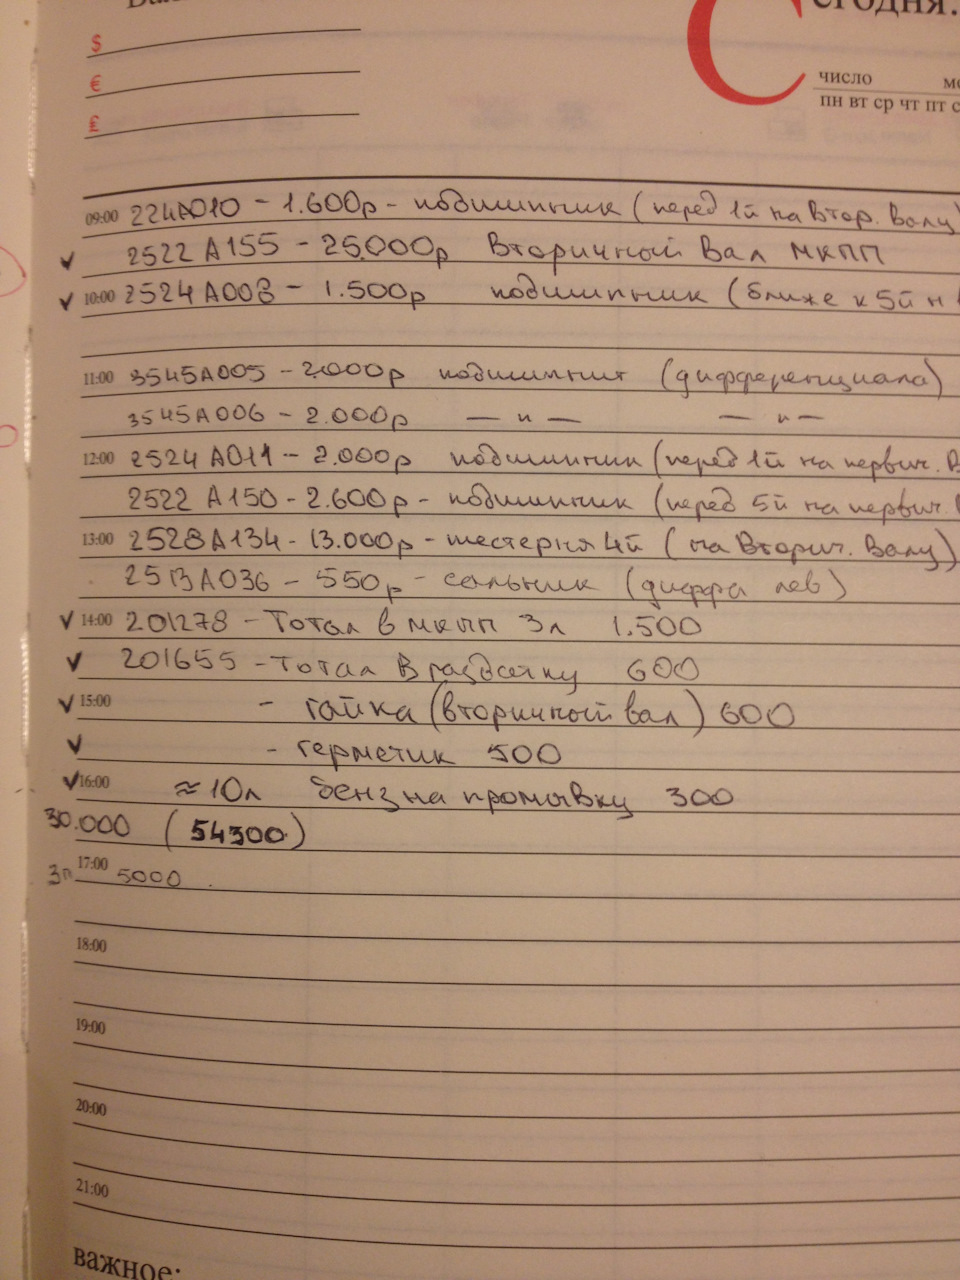 $
сегодня:
€
число
£
пн вт ср чт пт с
09:00 224А010 - 1.600р - подшипник (перед 1й на втор. валу)
✓ 2522 А155 - 25.000р Вторичный Вал МКПП
✓ 10:00 2524 А008 - 1.500р подшипник (ближе к 5й н
11:00 3545А005 - 2.000р подшипник (дифференциала)
3545А006 - 2.000р — и — — и —
12:00 2524 А011 - 2.000р подшипник (перед 1й на первич. в
2522 А150 - 2.600р - подшипник (перед 5й на первич.
13:00 2528А134 - 13.000р - шестерня 4й (на Вторич. Валу)
2513А036 - 550р - сальник (диффа лев)
✓ 14:00 201278 - Тотал в мкпп 3л 1.500
✓ 201655 - Тотал в раздатку 600
✓ 15:00 - гайка (вторичный вал) 600
✓ - герметик 500
✓ 16:00 ≈ 10л бенз на промывку 300
30.000 (54300)
17:00 зп 5000
18:00
19:00
20:00
21:00
важное: